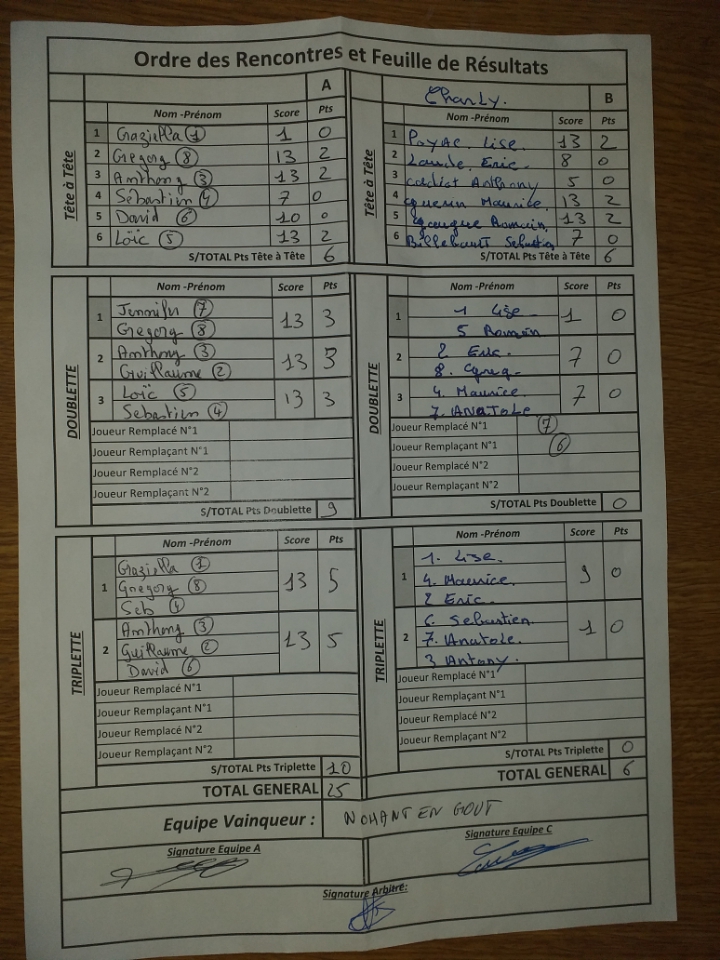 Ordre des Rencontres et Feuille de Résultats
A
Charly. B
Tête à Tête
Nom -Prénom Score Pts
1 Graziella (1) 1 0
2 Gregory (8) 13 2
3 Anthony (3) 13 2
4 Sébastien (4) 7 0
5 David (6) 10 0
6 Loïc (5) 13 2
S/TOTAL Pts Tête à Tête 6
Tête à Tête
Nom -Prénom Score Pts
1 Payac. Lise. 13 2
2 Eric. 8 0
3 Anthony 5 0
4 Maurice. 13 2
5 Romain. 13 2
6 Billebault Sebastien 7 0
S/TOTAL Pts Tête à Tête 6
DOUBLETTE
Nom -Prénom Score Pts
1 Jennifer (7)
Gregory (8) 13 3
2 Anthony (3)
Guillaume (2) 13 3
3 Loïc (5)
Sebastien (4) 13 3
Joueur Remplacé N°1
Joueur Remplaçant N°1
Joueur Remplacé N°2
Joueur Remplaçant N°2
S/TOTAL Pts Doublette 9
DOUBLETTE
Nom -Prénom Score Pts
1 1 Lise
5 Romain 1 0
2 2 Eric.
8. Greg. 7 0
3 4. Maurice
7. Anatole 7 0
Joueur Remplacé N°1 (7)
Joueur Remplaçant N°1 (6)
Joueur Remplacé N°2
Joueur Remplaçant N°2
S/TOTAL Pts Doublette 0
TRIPLETTE
Nom -Prénom Score Pts
1 Graziella (1)
Gregory (8)
Seb (4) 13 5
2 Anthony (3)
Guillaume (2)
David (6) 13 5
Joueur Remplacé N°1
Joueur Remplaçant N°1
Joueur Remplacé N°2
Joueur Remplaçant N°2
S/TOTAL Pts Triplette 10
TOTAL GENERAL 25
TRIPLETTE
Nom -Prénom Score Pts
1 1. Lise.
4. Maurice.
2 Eric. 9 0
2 6. Sebastien.
7. Anatole.
3 Antony. 1 0
Joueur Remplacé N°1
Joueur Remplaçant N°1
Joueur Remplacé N°2
Joueur Remplaçant N°2
S/TOTAL Pts Triplette 0
TOTAL GENERAL 6
Equipe Vainqueur : NOHANT EN GOUT
Signature Equipe A
Signature Equipe C
Signature Arbitre: